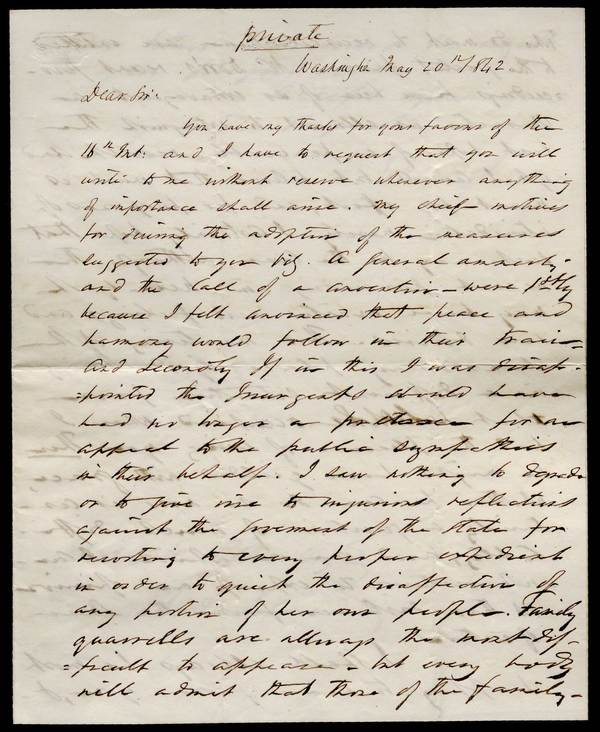 private
Washington May 20th 1842
Dear Sir:
You have my thanks for your favors of the
16th Inst: and I have to request that you will
write to me without reserve whenever anything
of importance shall arise. My chief motives
for desiring the adoption of the measures
suggested to you viz. A general amnesty-
and the call of a convention - were 1stly
because I felt convinced that peace and
harmony would follow in their train-
And Secondly If in this I was disap-
=pointed the Insurgents would have
had no longer a pretence for an
appeal to the public sympathies
in their behalf. I saw nothing to degrade
or to give rise to injurious reflections
against the government of the State for
resorting to every proper expedient
in order to quiet the disaffection of
any portion of her own people. Family
quarrells are allways the most dif-
=ficult to appease - but every body
will admit that those of the family-